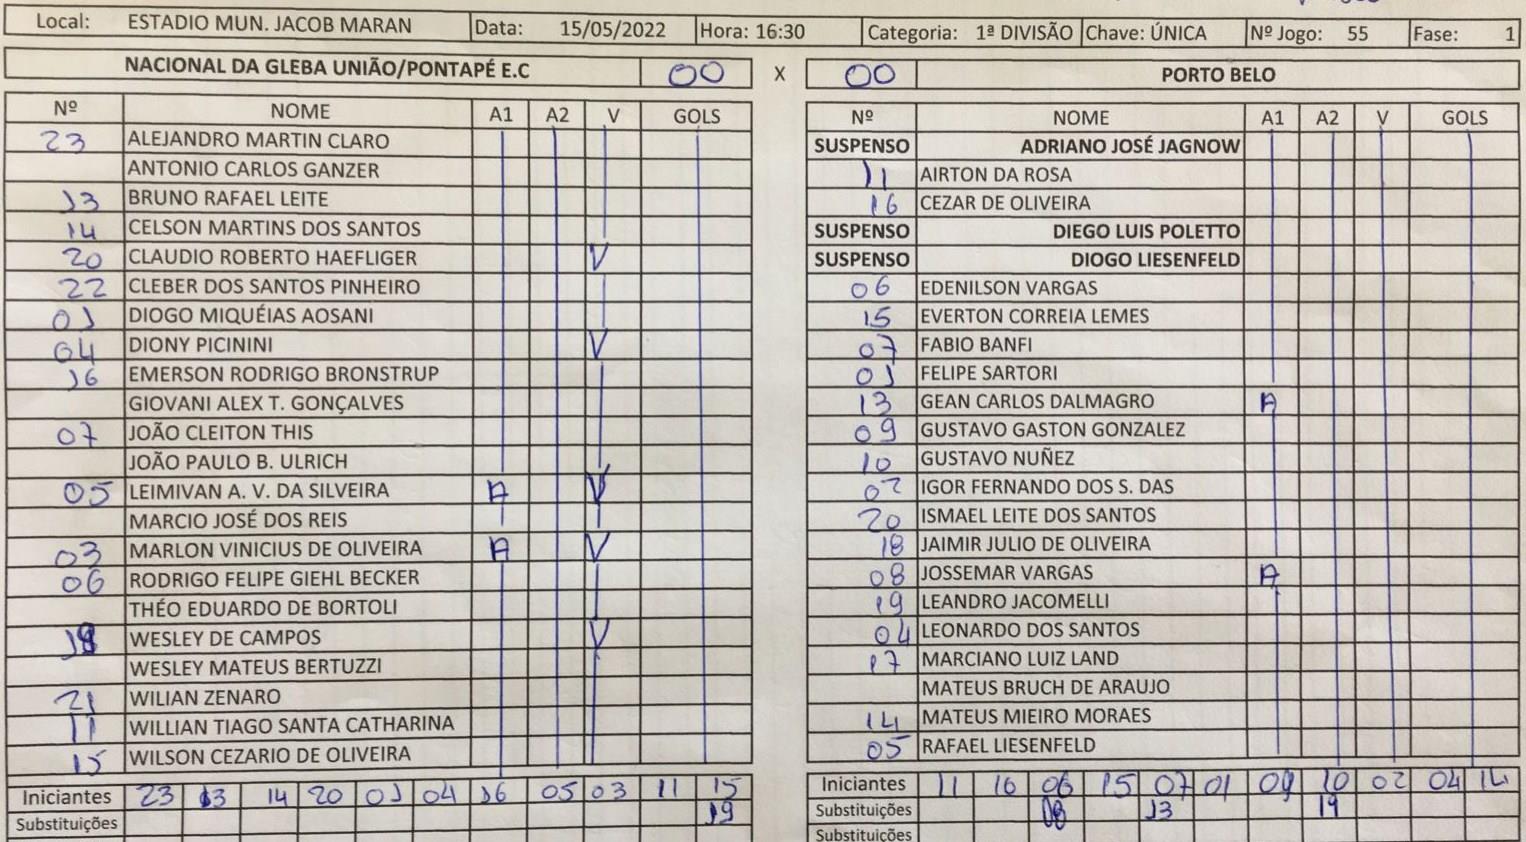 Local: ESTADIO MUN. JACOB MARAN Data: 15/05/2022 Hora: 16:30 Categoria: 1ª DIVISÃO Chave: ÚNICA Nº Jogo: 55 Fase: 1
NACIONAL DA GLEBA UNIÃO/PONTAPÉ E.C 00 X 00 PORTO BELO
Nº NOME A1 A2 V GOLS
23 ALEJANDRO MARTIN CLARO
ANTONIO CARLOS GANZER
13 BRUNO RAFAEL LEITE
14 CELSON MARTINS DOS SANTOS
20 CLAUDIO ROBERTO HAEFLIGER V
22 CLEBER DOS SANTOS PINHEIRO
01 DIOGO MIQUÉIAS AOSANI
04 DIONY PICININI V
16 EMERSON RODRIGO BRONSTRUP
GIOVANI ALEX T. GONÇALVES
07 JOÃO CLEITON THIS
JOÃO PAULO B. ULRICH
05 LEIMIVAN A. V. DA SILVEIRA A V
MARCIO JOSÉ DOS REIS
03 MARLON VINICIUS DE OLIVEIRA A V
06 RODRIGO FELIPE GIEHL BECKER
THÉO EDUARDO DE BORTOLI
WESLEY DE CAMPOS V
WESLEY MATEUS BERTUZZI
21 WILIAN ZENARO
11 WILLIAN TIAGO SANTA CATHARINA
15 WILSON CEZARIO DE OLIVEIRA
Iniciantes 23 13 14 20 01 04 16 05 03 11 15
Substituições 19
Nº NOME A1 A2 V GOLS
SUSPENSO ADRIANO JOSÉ JAGNOW
11 AIRTON DA ROSA
16 CEZAR DE OLIVEIRA
SUSPENSO DIEGO LUIS POLETTO
SUSPENSO DIOGO LIESENFELD
06 EDENILSON VARGAS
15 EVERTON CORREIA LEMES
07 FABIO BANFI
01 FELIPE SARTORI
13 GEAN CARLOS DALMAGRO A
09 GUSTAVO GASTON GONZALEZ
10 GUSTAVO NUÑEZ
02 IGOR FERNANDO DOS S. DAS
20 ISMAEL LEITE DOS SANTOS
18 JAIMIR JULIO DE OLIVEIRA
08 JOSSEMAR VARGAS A
19 LEANDRO JACOMELLI
04 LEONARDO DOS SANTOS
17 MARCIANO LUIZ LAND
MATEUS BRUCH DE ARAUJO
14 MATEUS MIEIRO MORAES
05 RAFAEL LIESENFELD
Iniciantes 11 16 06 15 07 01 09 10 02 04 14
Substituições 13 19
Substituições